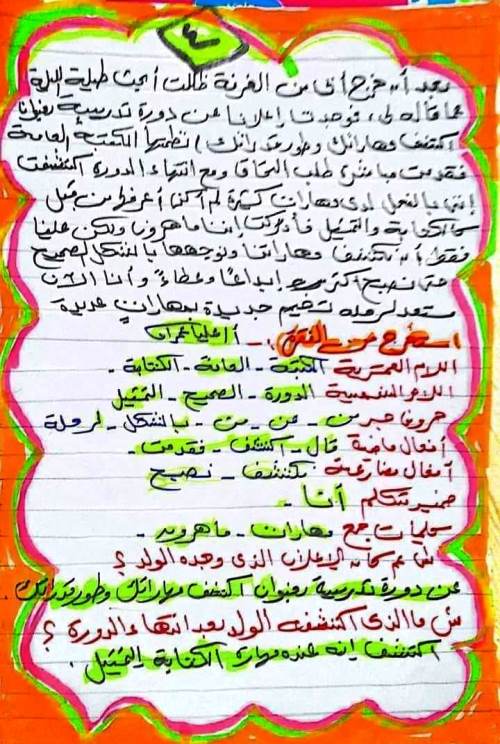 ٤
بعد أن خرج أبى من الغرفة ظللت أبحث طيلة الليلة
عما قاله لى، فوجدت إعلانا عن دورة تدريبية بعنوان
اكتشف مهاراتك وطور قدراتك) نظمتها المكتبة العامة
فقدمت مباشرة طلب التحاق ومع انتهاء الدورة اكتشفت
إننى بالفعل لدى مهارات كثيرة لم أكن أعرفها من قبل
كالكتابة والتمثيل فأدركت إننا ماهرون ولكن علينا
فقط أن نكتشف مهاراتنا ونوجهها بالشكل الصحيح
حتى نصبح أكثر إبداعًا وعطاءً وأنا الآن
مستعد لرحلة تخييم جديدة بمهارات عديدة
استخرج من النص :-
اللام القمرية المكتبة - العامة - الكتابة -
اللام الشمسية الدورة - الصحيح - التمثيل
حروف جر من - عن - من - بالشكل - لرحلة
أفعال ماضية قال - اكتشف - فقدمت -
أفعال مضارعة نكتشف - نصبح
ضمير تتكلم أنا -
كلمات جمع مهارات - ماهرون -
س عم كان الإعلان الذى وجده الولد ؟
عن دورة تدريبية بعنوان اكتشف مهاراتك وطور قدراتك
س ما الذى اكتشفه الولد بعد انتهاء الدورة ؟
اكتشف إنه عنده مهارة الكتابة التمثيل .